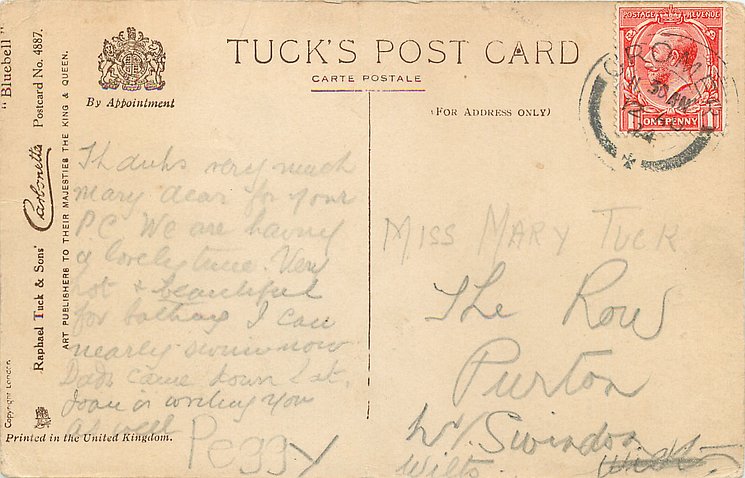 "Bluebell"
Raphael Tuck & Sons' Carbonette Postcard No. 4887.
ART PUBLISHERS TO THEIR MAJESTIES THE KING & QUEEN.
Copyright London
By Appointment
TUCK'S POST CARD
CARTE POSTALE
(FOR ADDRESS ONLY)
POSTAGE REVENUE
ONE PENNY
Thanks very much
Mary dear for your
PC We are having
a lovely time. Very
hot & beautiful
for bathing I can
nearly swim now
Dads came down Sat.
Joan is writing you
as well
Peggy
MISS MARY TUCK
The Row
Purton
Nr. Swindon
Wilts.
Printed in the United Kingdom.